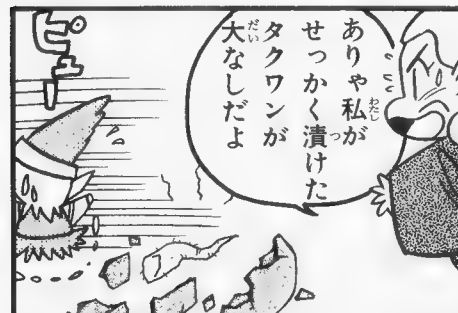 ありゃ私が
せっかく漬けた
タクワンが
大なしだよ